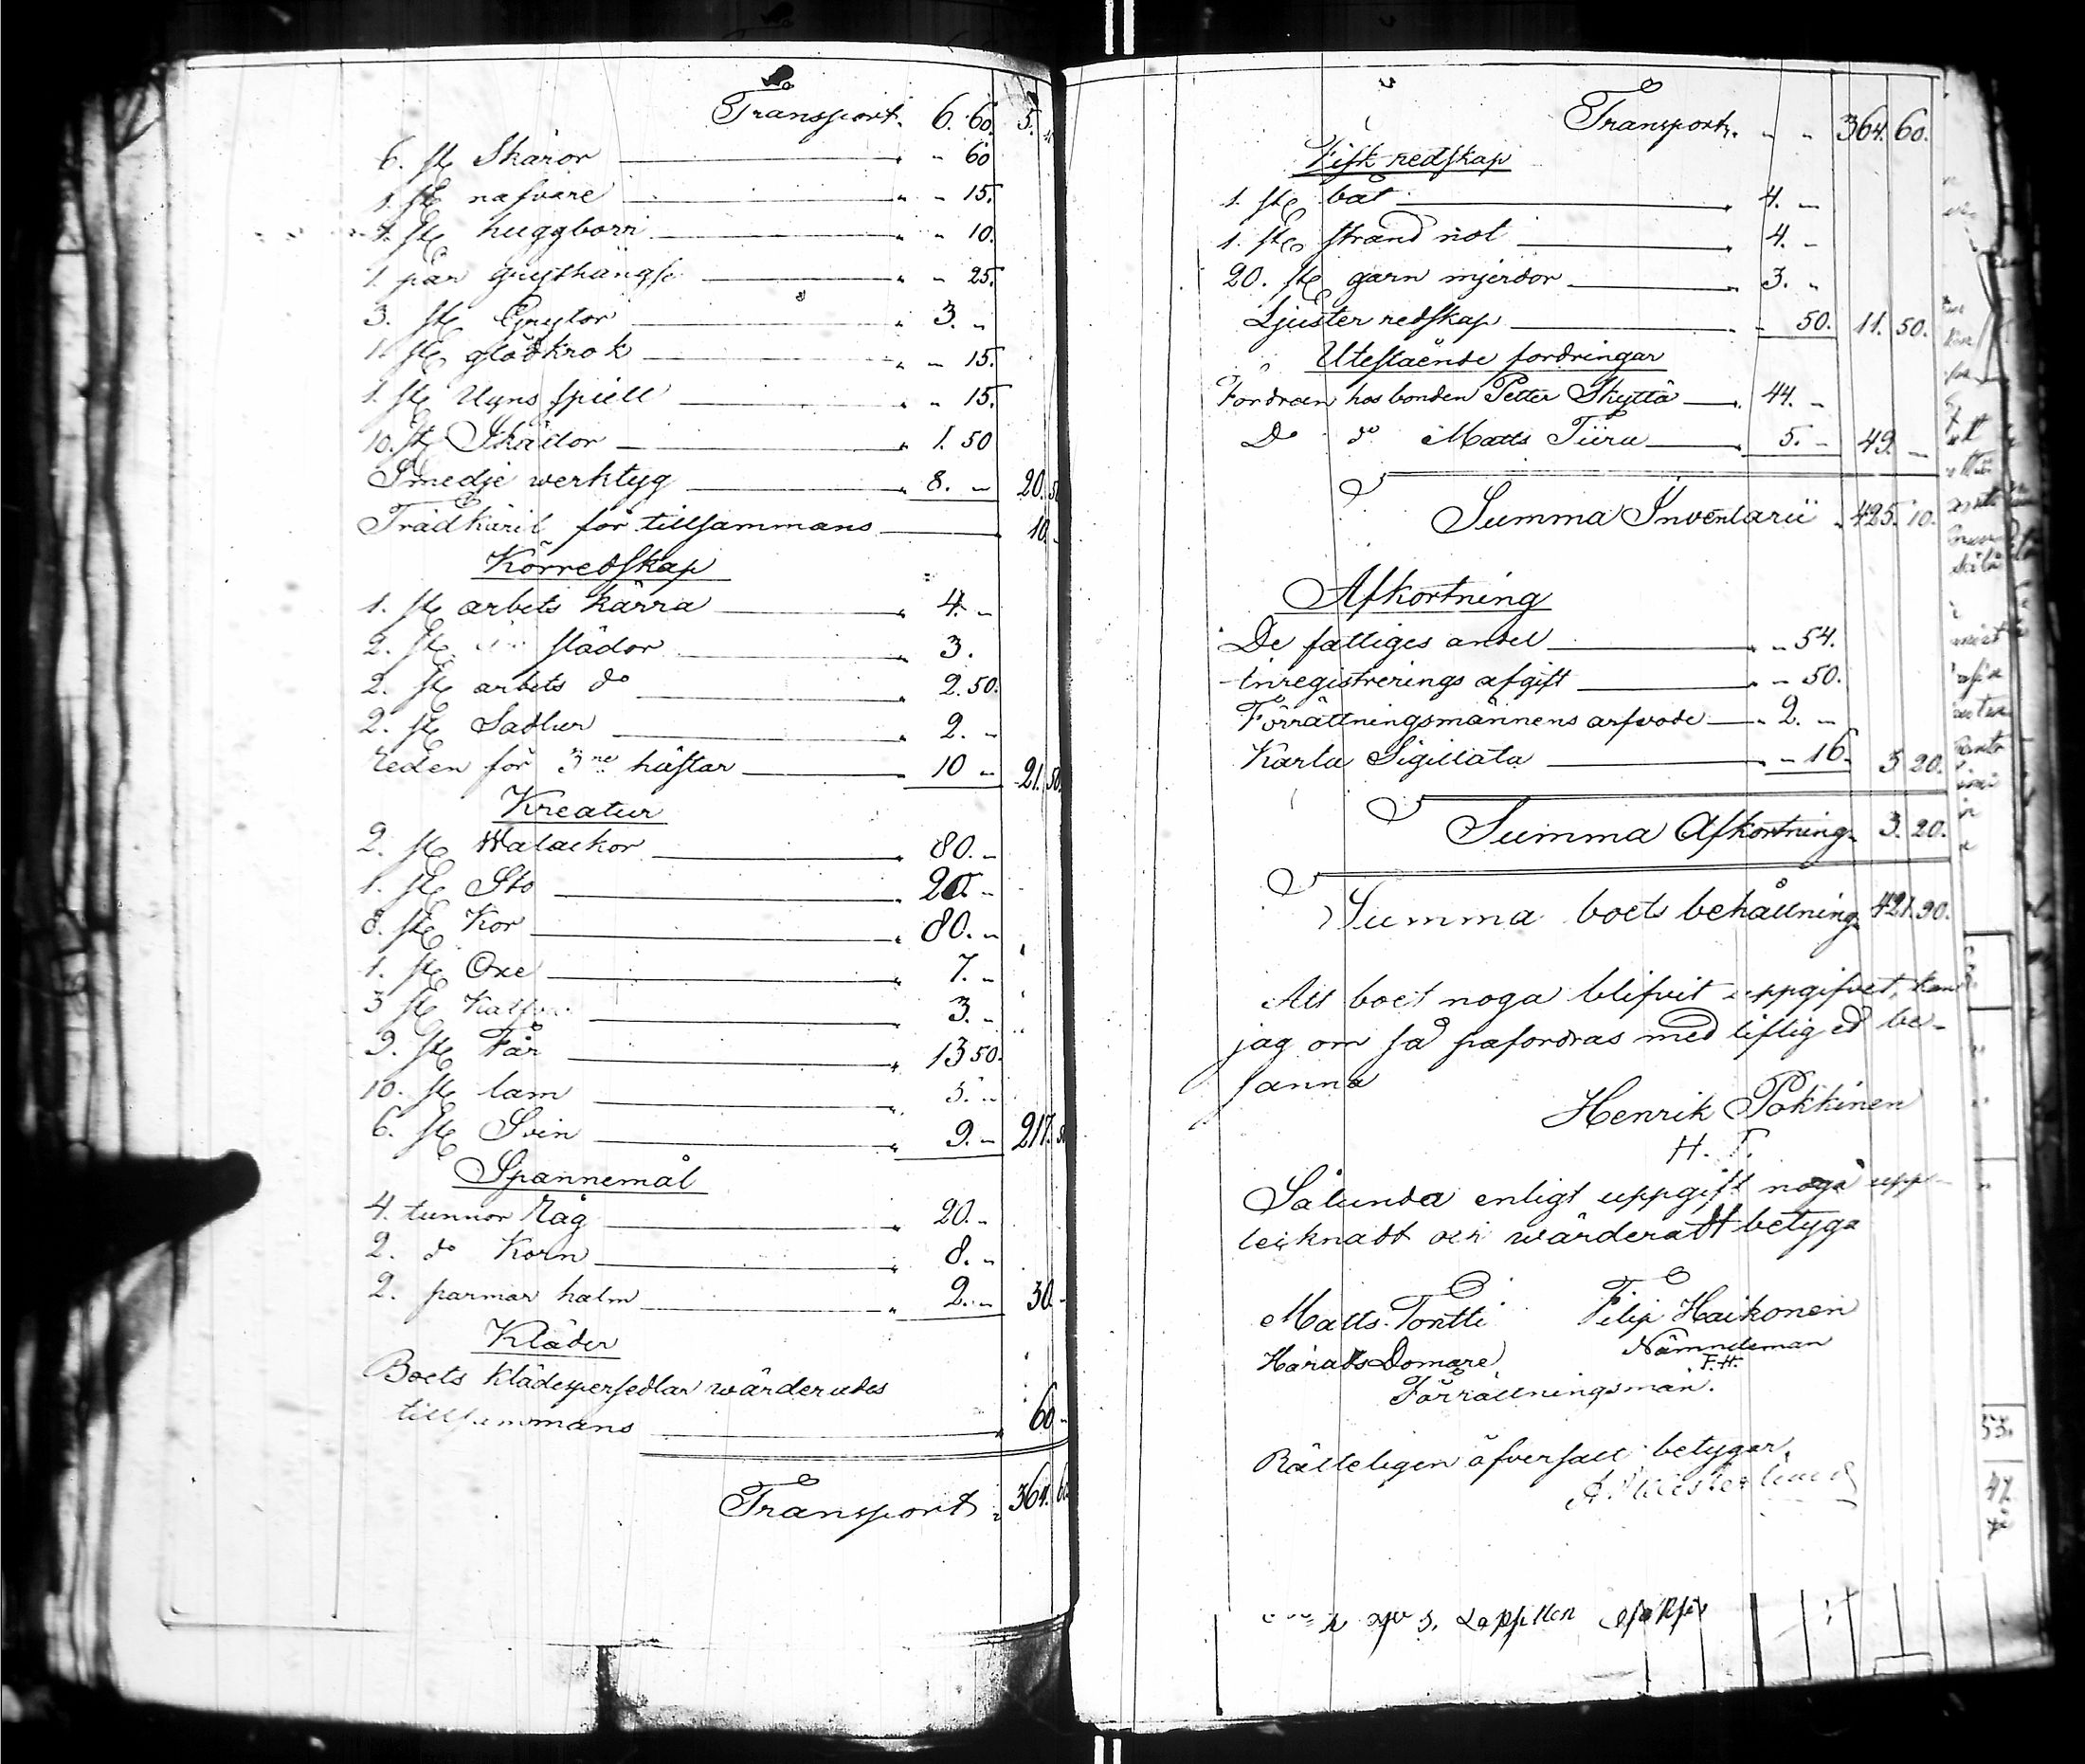 Transport. 6. 60. 5.
6. st Skäror " - 60
1. st nafvare " - 15.
1. st huggborr " - 10.
1. par " - 25.
3. st Grytor " 3. "
1. st glödkrok " - 15.
1. st Ugns spiell " - 15.
10. st " 1. 50
Smedje werktyg " 8. - 20. 50
Trädkäril för tillsammans 10. -
Körredskap
1. st arbets kärra " 4. -
2. st slädor " 3.
2. st arbets do " 2. 50.
2. st Sadlar " 2. -
Reden för 3ne hästar " 10 - 21. 50.
Kreatur
2. st Walackor " 80. -
1. st Sto " 20. -
8. st Kor " 80. -
1. st Oxe " 7. -
3 st " 3. -
9. st Får " 13 50.
10. st lam " 5. -
6. st Svin " 9. - 217. 50
Spannemål
4. tunnor Råg " 20. -
2. do Korn " 8. -
2. parmar halm " 2. - 30. -
Kläder
Boets klädespersedlar wärderades
tillsammans 60 -
Transport 364. 60
Transport. " " 364. 60.
Fisk redskap
1. st båt 4. -
1. st strand not 4. -
20. st garn mjerdor 3. "
Ljuster redskap - 50. 11. 50.
Utestående fordringar
Fordran hos bonden Petter Skyttä 44. -
Do do Matts Tiira 5. - 49. -
Summa Inventarii 425. 10.
Afkortning
De fattiges andel " " 54.
Inregistrerings afgift " - 50.
Förrättningsmännens arfvode " 2. -
Karta Sigillata " - 16. 3 20.
Summa Afkortning 3. 20.
Summa boets behållning 421. 90.
Att boet noga blifvit uppgifvet, kan
jag om så påfordras med liflig ed be-
sanna
Henrik Pokkinen
H. P.
Sålunda enligt uppgift noga upp-
teiknadt och wärderadt betyga
Matts Tontti Filip Haikonen
Härads Domare Nämndeman
F. H.
Förrättningsmän.
Rätteligen öfversatt betygar.
53.